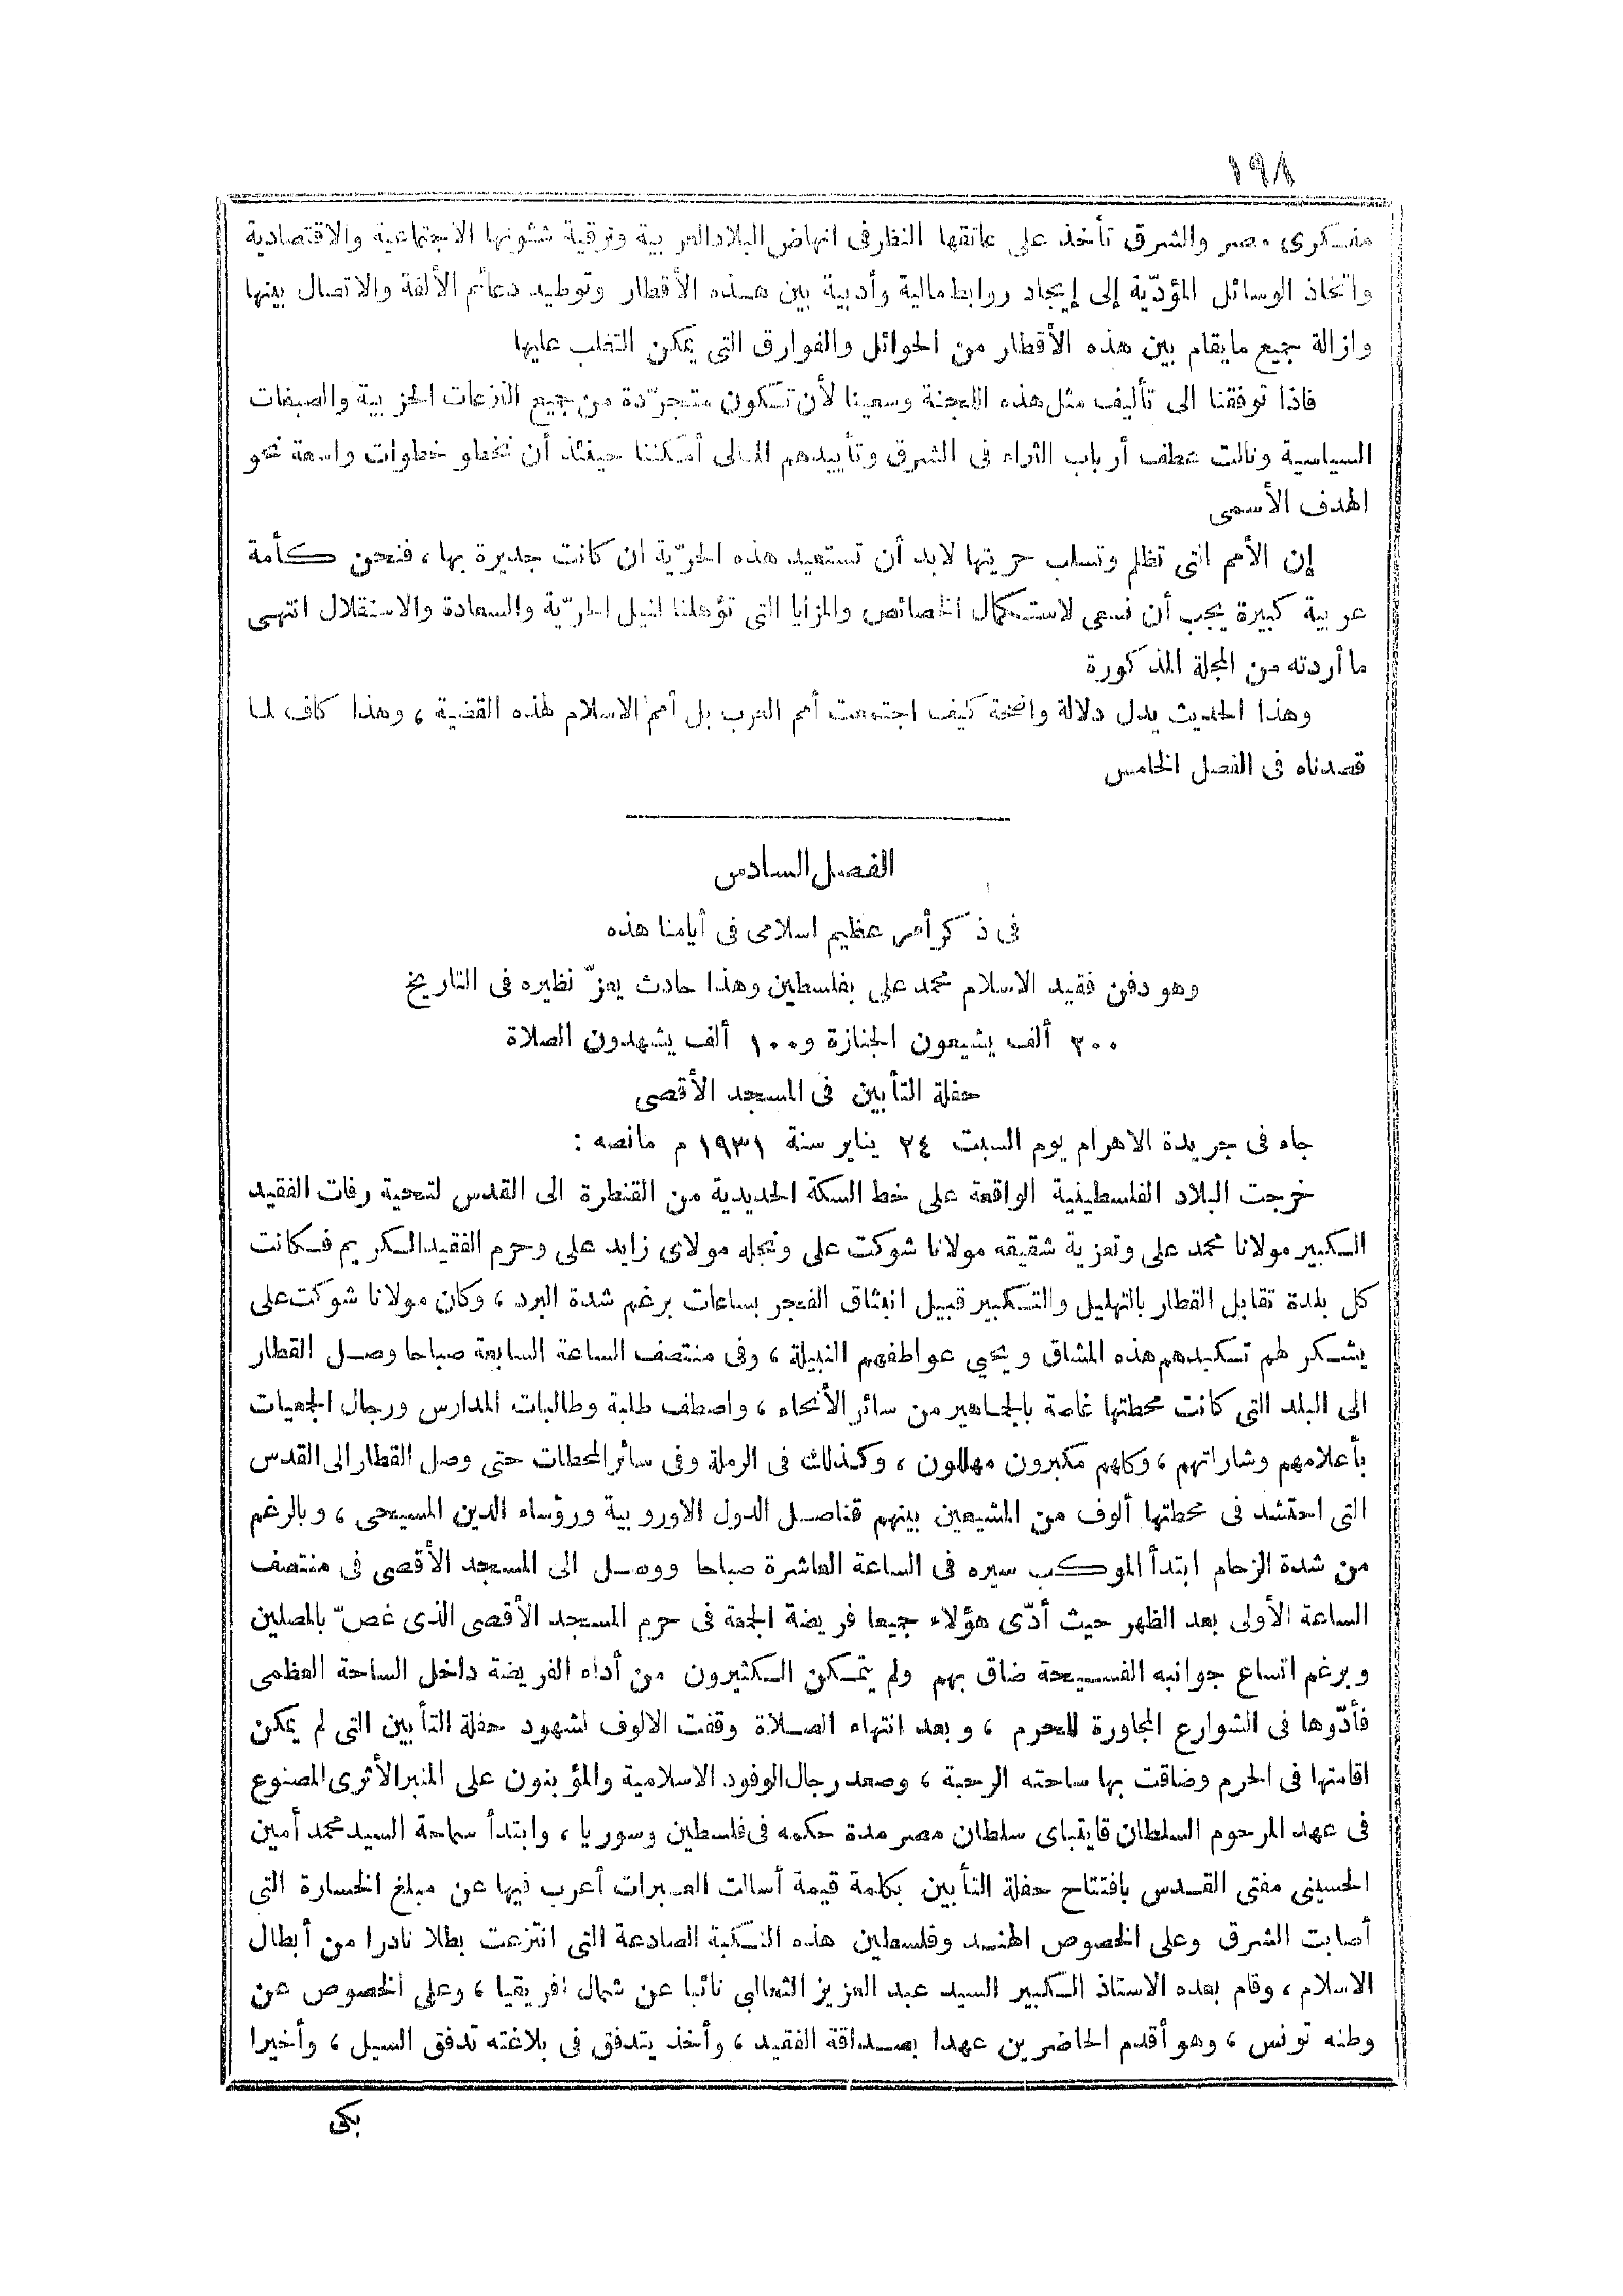 ١٩٨
مفكرى مصر والشرق تأخذ على عاتقها النظر فى انهاض البلاد العربية وترقية شئونها الاجتماعية والاقتصادية
واتخاذ الوسائل المؤدّية إلى إيجاد روابط مالية وأدبية بين هذه الأقطار وتوطيد دعائم الألفة والاتصال بينها
وازالة جميع مايقام بين هذه الأقطار من الحوائل والفوارق التى يمكن التغلب عليها
فاذا توفقنا الى تأليف مثل هذه اللجنة وسعينا لأن تتكون متجرّدة من جميع النزعات الحزبية والصبغات
السياسية ونالت عطف أرباب الثراء فى الشرق وتأييدهم المالى أمكننا حينئذ أن نخطو خطوات واسعة نحو
الهدف الأسمى
إن الأمم التى تظلم وتسلب حريتها لابد أن تستعيد هذه الحرّية ان كانت جديرة بها ، فنحن كأمة
عربية كبيرة يجب أن نسعى لاستكمال الخصائص والمزايا التى تؤهلنا لنيل الحرّية والسعادة والاستقلال انتهى
ما أردته من المجلة المذكورة
وهذا الحديث يدل دلالة واضحة كيف اجتمعت أمم العرب بل أمم الاسلام لهذه القضية ، وهذا كاف لما
قصدناه فى الفصل الخامس
الفصل السادس
فى ذكر أمر عظيم اسلامى فى أيامنا هذه
وهو دفن فقيد الاسلام محمد على بفلسطين وهذا حادث يعزّ نظيره فى التاريخ
٢٠٠ ألف يشيعون الجنازة و١٠٠ ألف يشهدون الصلاة
حفلة التأبين فى المسجد الأقصى
جاء فى جريدة الاهرام يوم السبت ٢٤ يناير سنة ١٩٣١ م مانصه :
خرجت البلاد الفلسطينية الواقعة على خط السكة الحديدية من القنطرة الى القدس لتحية رفات الفقيد
الكبير مولانا محمد على وتعزية شقيقه مولانا شوكت على ونجله مولاى زايد على وحرم الفقيد الكريم فكانت
كل بلدة تقابل القطار بالتهليل والتكبير قبيل انبثاق الفجر بساعات برغم شدة البرد ، وكان مولانا شوكت على
يشكر لهم تكبدهم هذه المشاق ويحيى عواطفهم النبيلة ، وفى منتصف الساعة السابعة صباحا وصل القطار
الى البلد التى كانت محطتها غاصة بالجماهير من سائر الأنحاء ، واصطف طلبة وطالبات المدارس ورجال الجمعيات
بأعلامهم وشاراتهم ، وكلهم مكبرون مهللون ، وكذلك فى الرملة وفى سائر المحطات حتى وصل القطار الى القدس
التى احتشد فى محطتها ألوف من المشيعين بينهم قناصل الدول الاوروبية ورؤساء الدين المسيحى ، وبالرغم
من شدة الزحام ابتدأ الموكب سيره فى الساعة العاشرة صباحا ووصل الى المسجد الأقصى فى منتصف
الساعة الأولى بعد الظهر حيث أدّى هؤلاء جميعا فريضة الجمعة فى حرم المسجد الأقصى الذى غصّ بالمصلين
وبرغم اتساع جوانبه الفسيحة ضاق بهم ولم يتمكن الكثيرون من أداء الفريضة داخل الساحة العظمى
فأدّوها فى الشوارع المجاورة للحرم ، وبعد انتهاء الصلاة وقفت الالوف لشهود حفلة التأبين التى لم يمكن
اقامتها فى الحرم وضاقت بها ساحته الرحبة ، وصعد رجال الوفود الاسلامية والمؤبنون على المنبر الأثرى المصنوع
فى عهد المرحوم السلطان قايتباى سلطان مصر مدة حكمه فى فلسطين وسوريا ، وابتدأ سماحة السيد محمد أمين
الحسينى مفتى القدس بافتتاح حفلة التأبين بكلمة قيمة أسالت العبرات أعرب فيها عن مبلغ الخسارة التى
أصابت الشرق وعلى الخصوص الهند وفلسطين هذه النكبة الصادعة التى انتزعت بطلا نادرا من أبطال
الاسلام ، وقام بعده الاستاذ الكبير السيد عبد العزيز الثعالبى نائبا عن شمال افريقيا ، وعلى الخصوص عن
وطنه تونس ، وهو أقدم الحاضرين عهدا بصداقة الفقيد ، وأخذ يتدفق فى بلاغته تدفق السيل ، وأخيرا
بكى